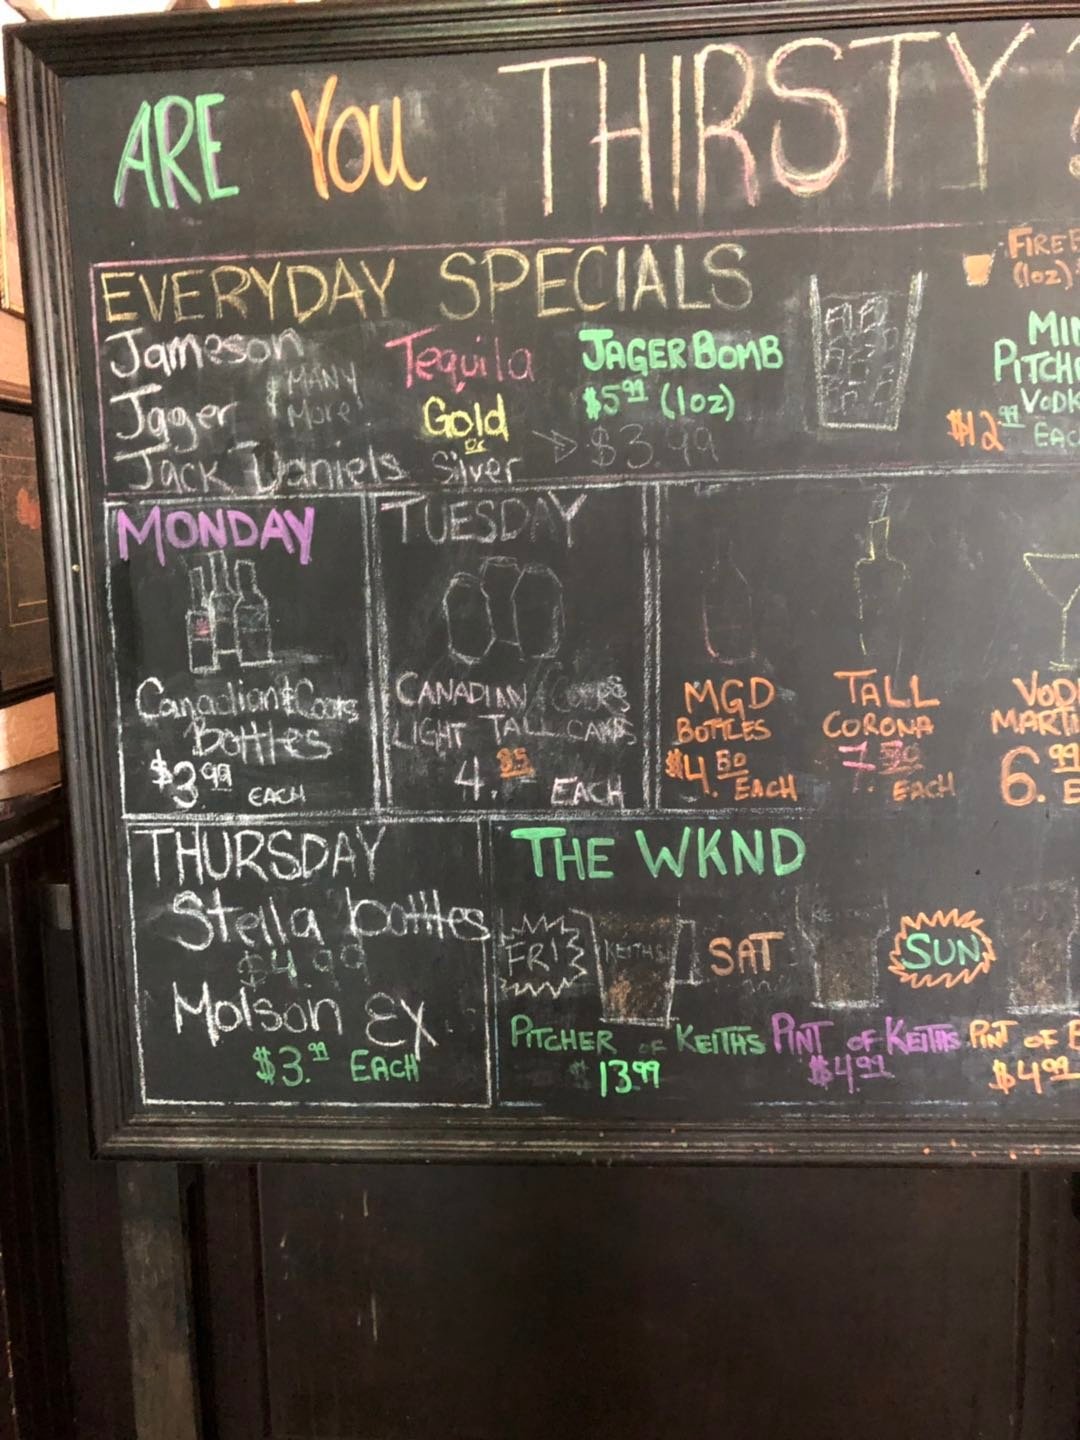 ARE YOU THIRSTY
EVERYDAY SPECIALS
Jameson
Jager
& MANY
More!
Jack Daniels
Tequila
Gold
or
Silver
→ $3.99
JAGER BOMB
$5.99 (1oz)
(1oz)
$12.99
MONDAY
Canadian & Coors
Bottles
$3.99 EACH
TUESDAY
CANADIAN / COORS
LIGHT TALL CANS
4.85 EACH
MGD
BOTTLES
$4.50
EACH
TALL
CORONA
7.50
EACH
6.99
THURSDAY
Stella bottles
$4.99
Molson EX
$3.99 EACH
THE WKND
FRI
KEITHS
SAT
SUN
PITCHER OF KEITHS
$13.99
PINT OF KEITHS
$4.99
PINT OF
$4.99